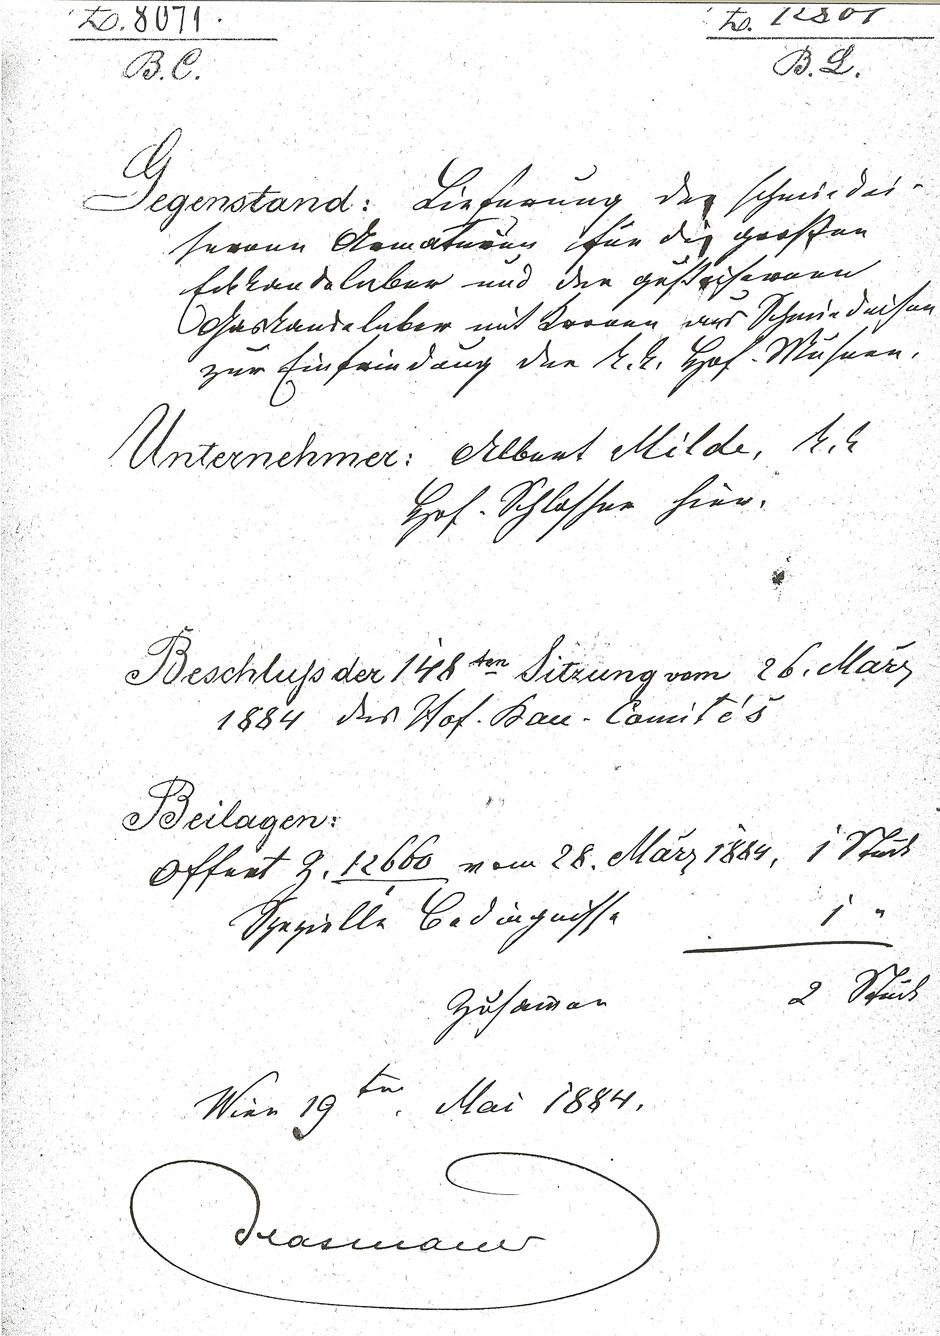 Z. 8071. Z. 12801
B.C. B.L.
Gegenstand: Lieferung der schmiedei-
sernen Armaturen für die großen
Eckkandelaber und der gußeisernen
Gaskandelaber mit Kronen aus Schmiedeisen
zur Einfriedung der k.k. Hof-Museen.
Unternehmer: Albert Milde, k.k
Hof-Schlosser hier.
Beschluß der 148ten Sitzung vom 26. März
1884 des Hof-Bau-Comité's
Beilagen:
Offert Z. 12660 vom 28. März 1884, 1 Stück
Spezielle Bedingnisse 1 "
Zusammen 2 Stück
Wien 19ten. Mai 1884.